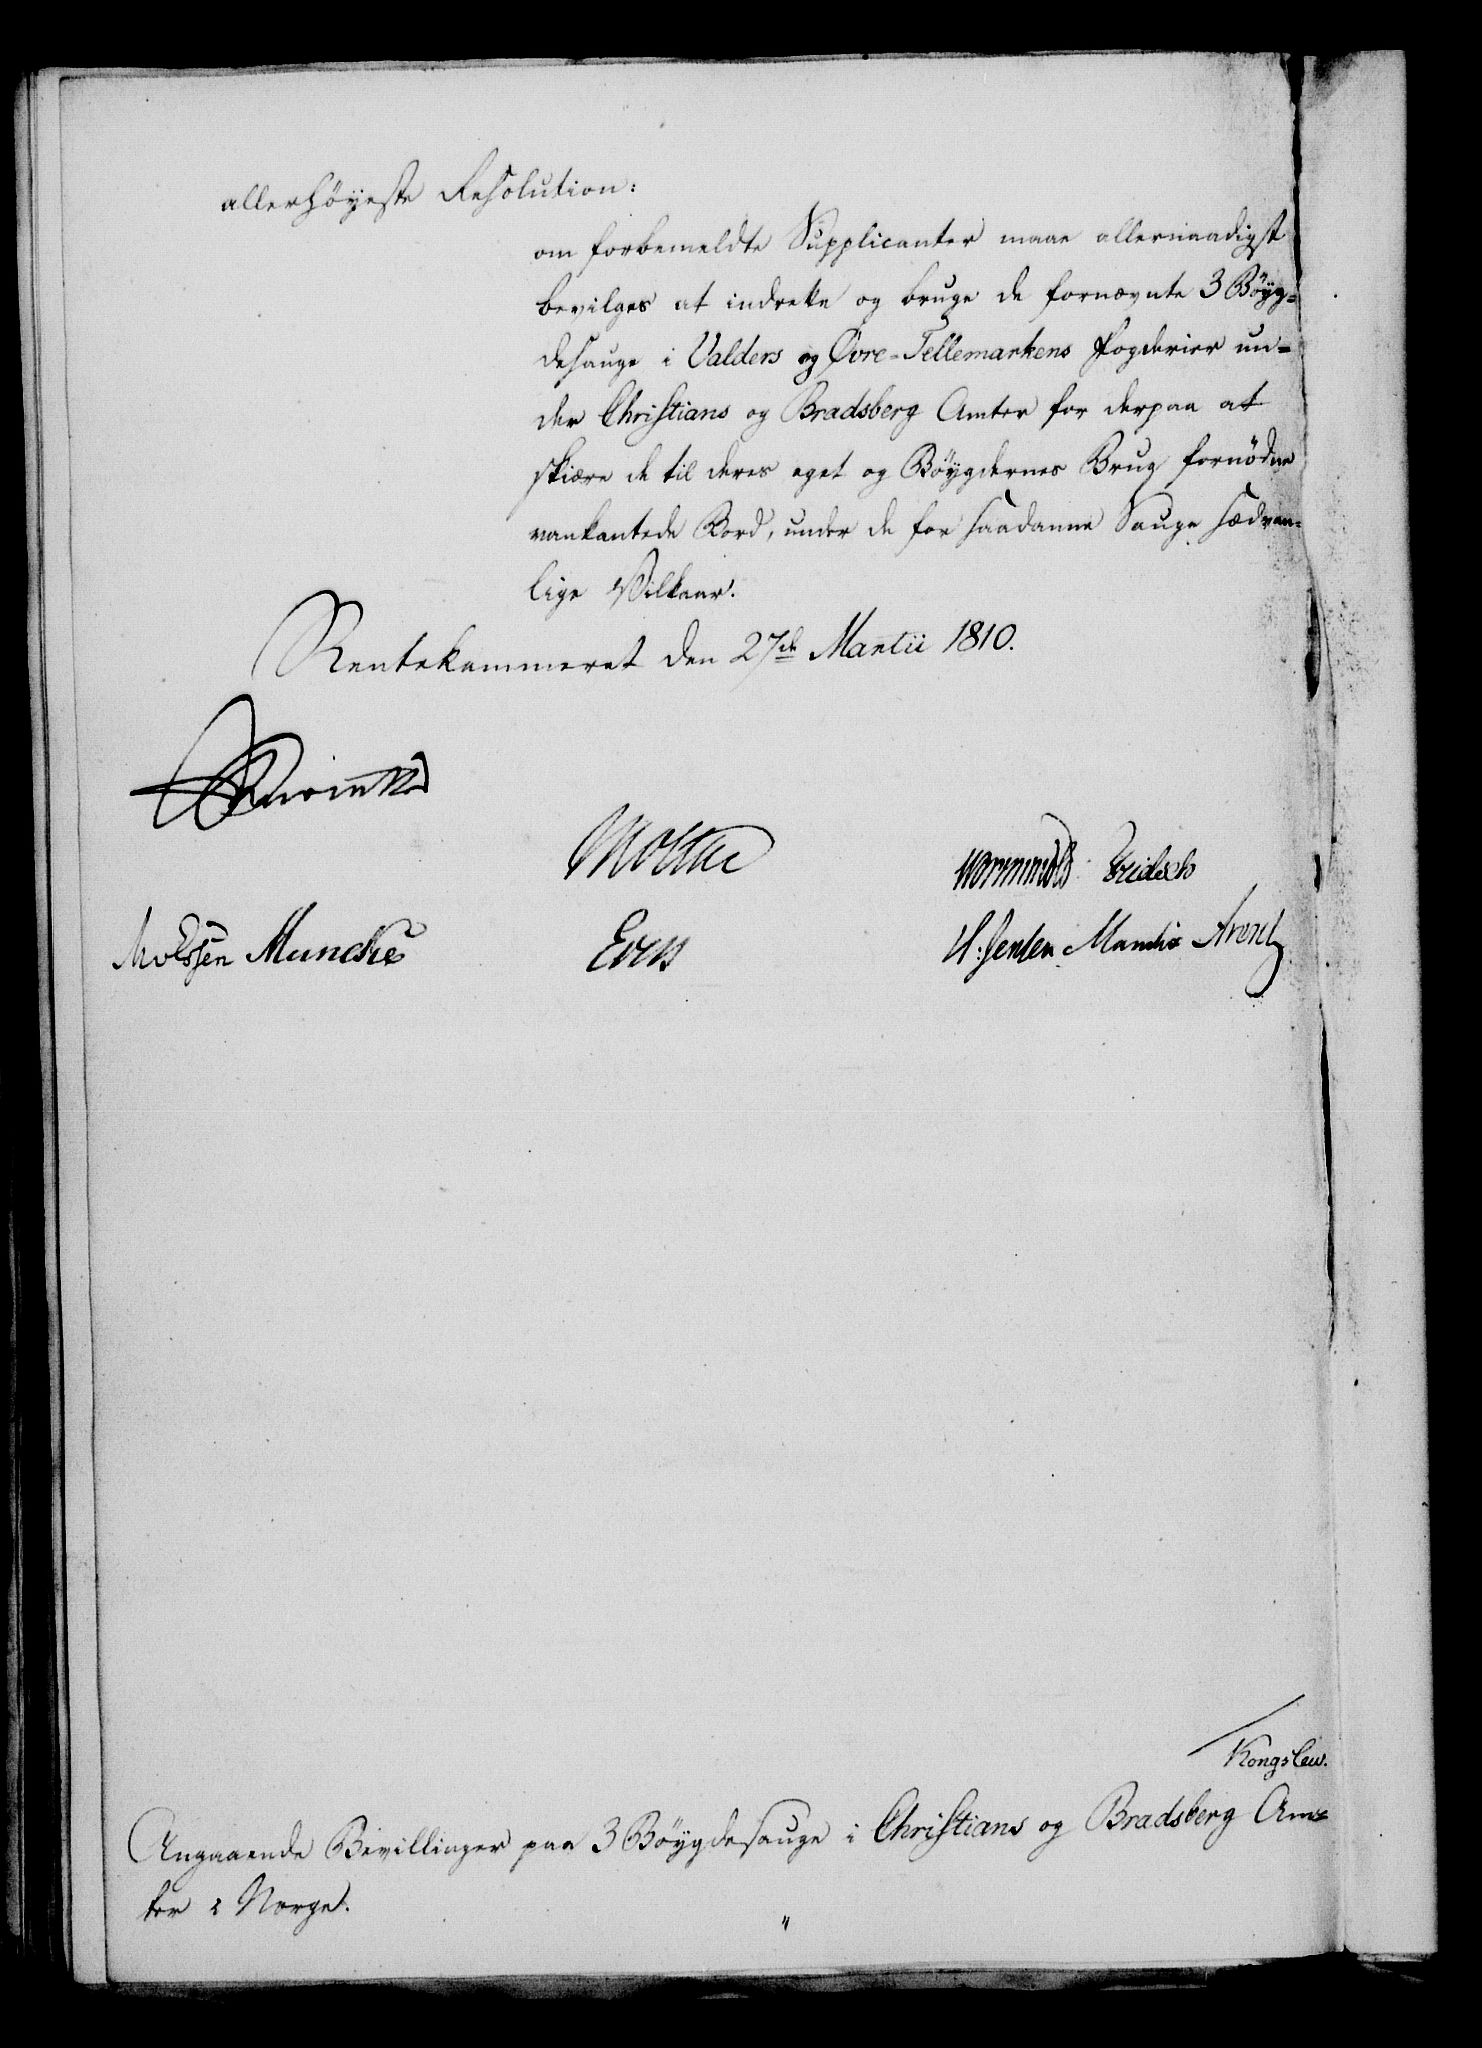 allerhöyeste Resolution:
om forbemeldte Supplicanter maae allernaadigst
bevilges at indrette og bruge de fornævnte 3 Böyg=
desauge i Valders og Øvre-Tellemarkens Fogderier un=
der Christians og Bradsberg Amter for derpaa at
skiære de til deres eget og Böygdernes Brug fornödne
vankantede Bord, under de for saadanne Sauge sædvan=
lige Vilkaar.
Rentekammeret den 27de Martii 1810.
Moltke
Wormskiold
Monssen Muncke
H. Jensen Manthe Arentz
Kongslew.
Angaaende Bevillinger paa 3 Böygdesauge i Christians og Bradsberg Am=
ter i Norge.